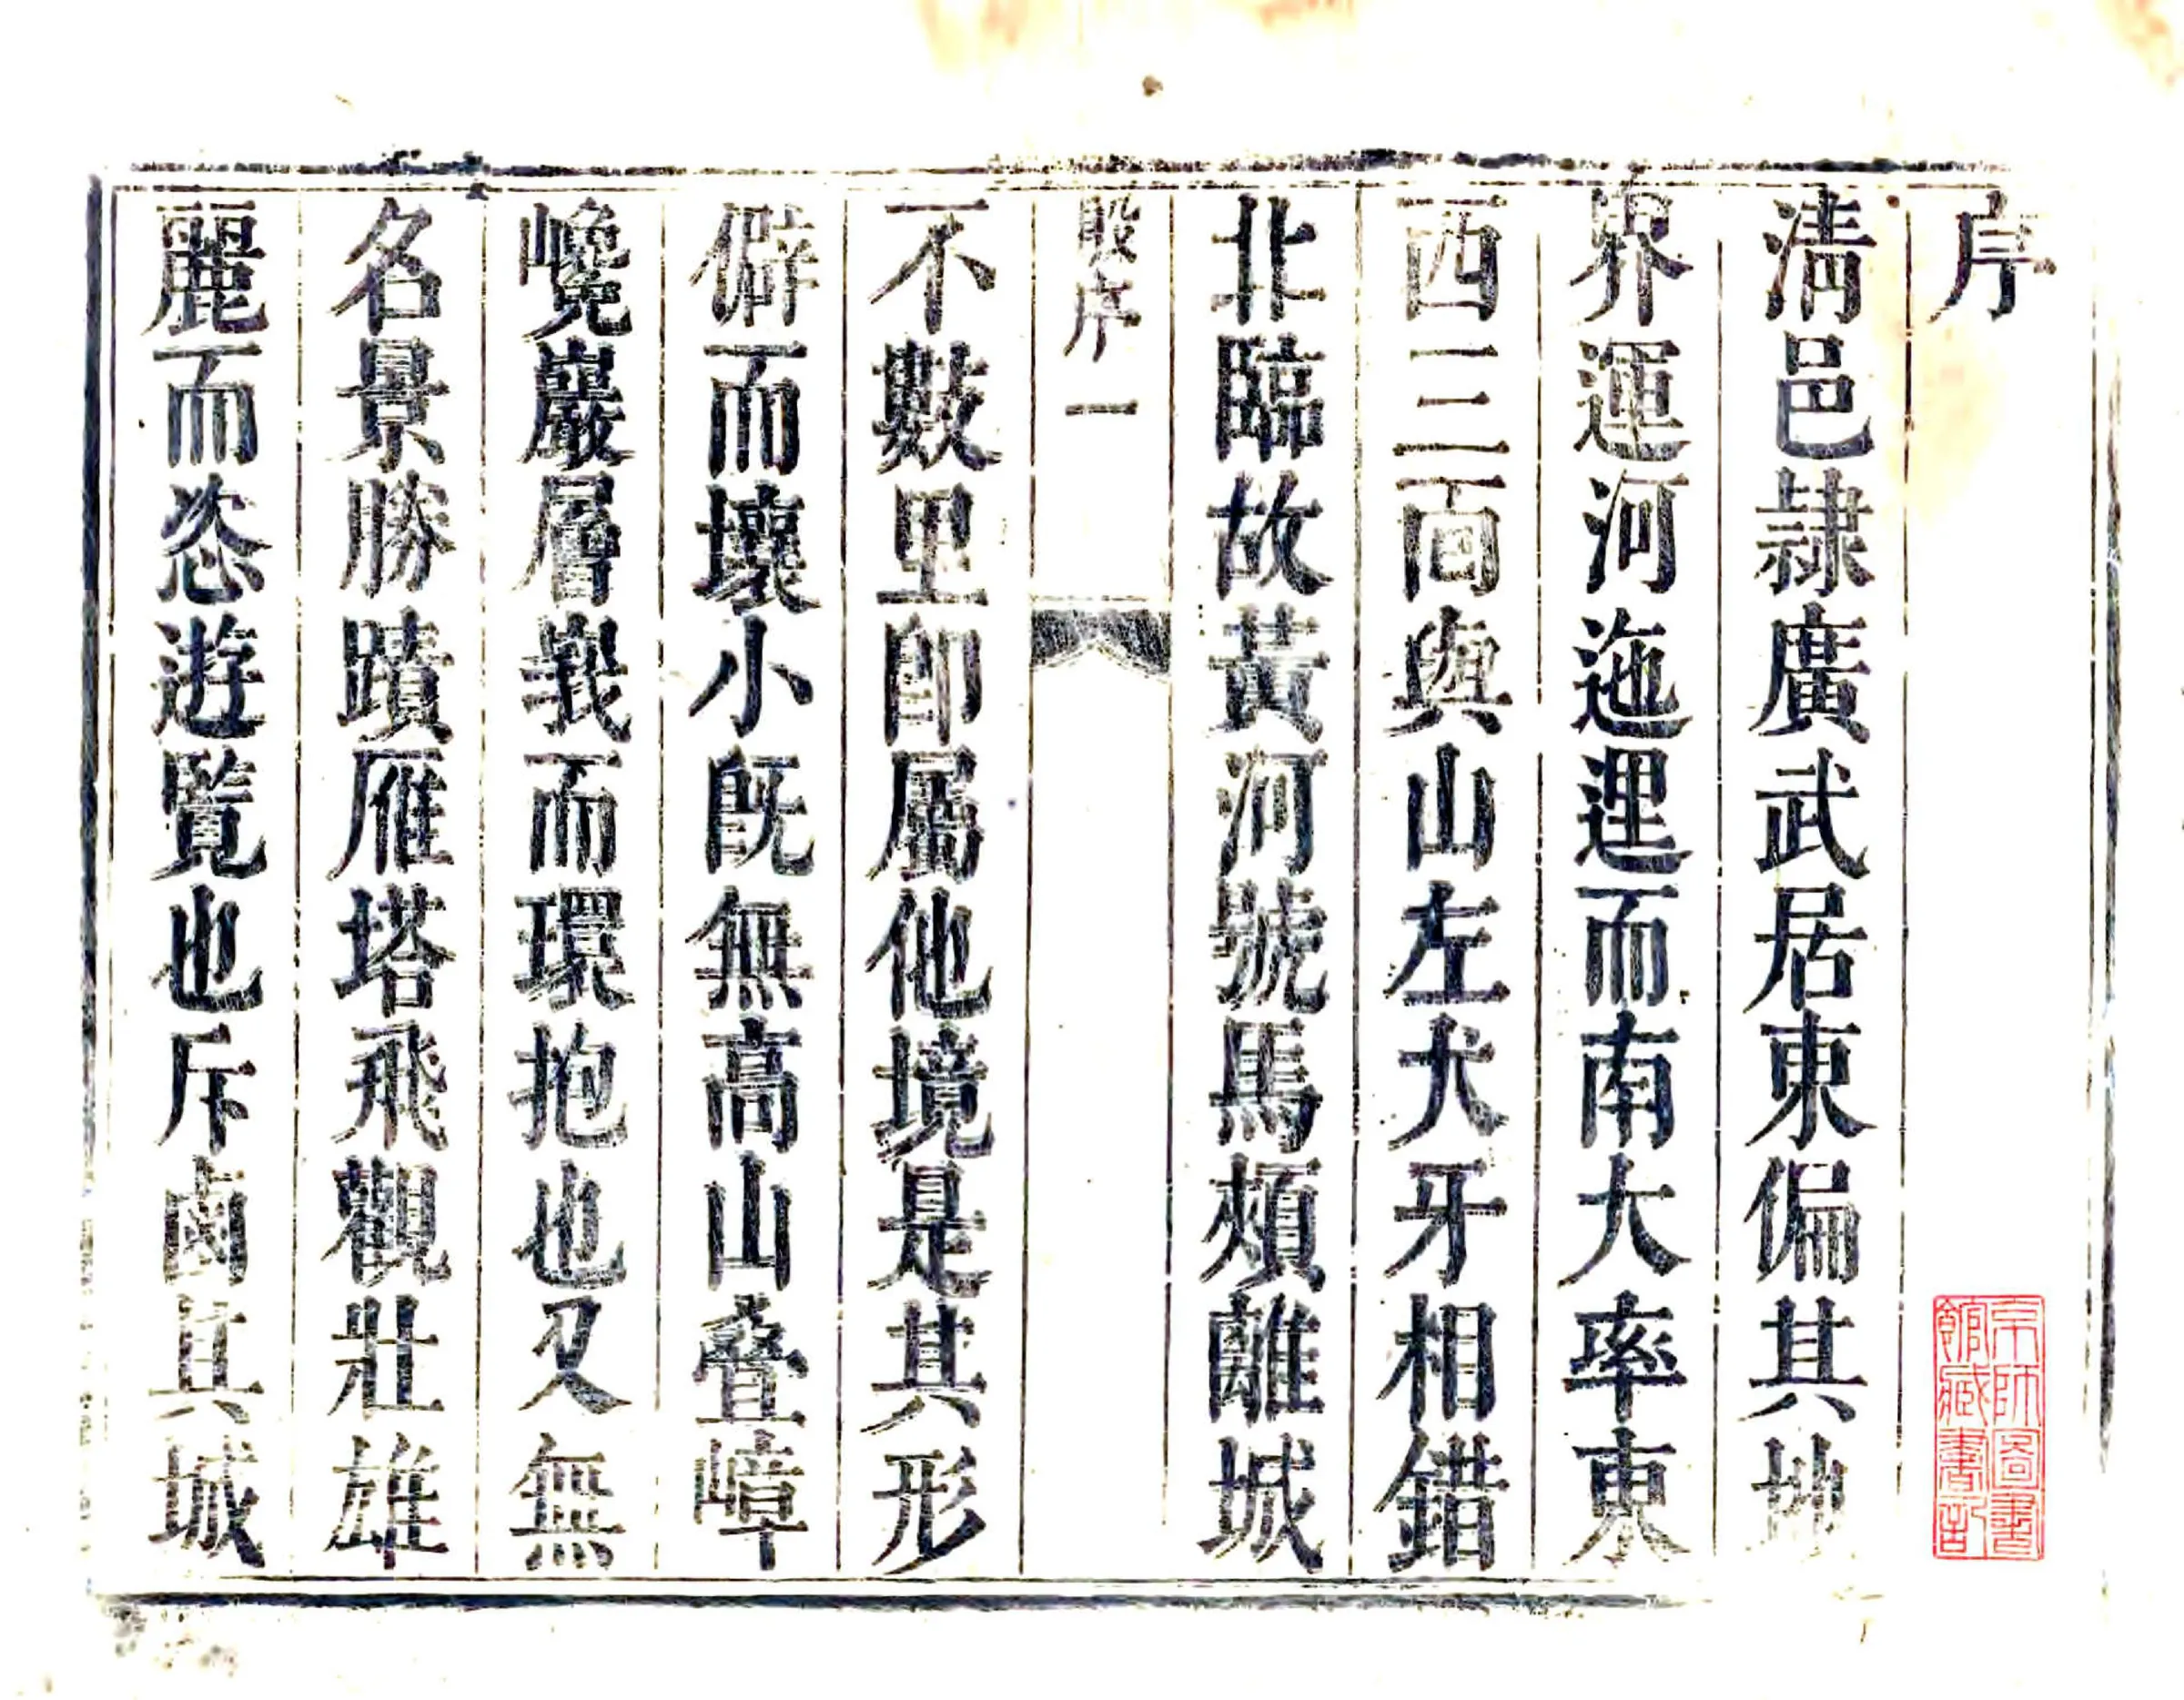 序
淸邑隷廣武居東偏其地
界運河迤逦而南大率東
西三面與山左犬牙相錯
北臨故黃河號馬頰離城
殷序一
不數里卽屬他境是其形
僻而壤小旣無高山叠嶂
巉巖層峩而環抱也又無
名景勝蹟雁塔飛觀壯雄
麗而恣遊覽也斥鹵其城
京師圖書
館藏書記